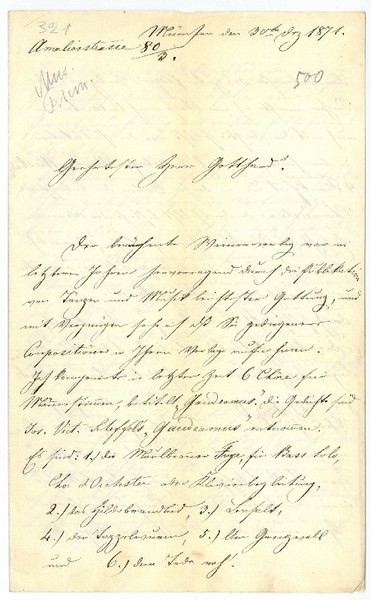 321
München den 30ten Dez 1871.
Amalienstrasse 80/3.
500
Geehrtester Herr Gotthard!
Der berühmte Wiener Verlag war in
letzteren Jahren hervorragend durch die Publikation
von Tänzen und Musik leichtster Gattung, und
mit Vergnügen sehe ich daß Sie gediegenere
Compositionen in Ihren Verlag aufnehmen.
Ich komponirte in letzter Zeit 6 Chöre für
Männerstimmen, betitelt „Gaudeamus", die Gedichte sind
Jos. Vict. Scheffels „Gaudeamus" entnommen.
Es sind: 1.) die Maulbronner Fuge, für Bass Solo,
Chor & Orchester oder Klavierbegleitung,
2.) das Hildebrandlied, 3.)
4.) der 5.) Am Grenzwall
und 6.) dem Tode nah!